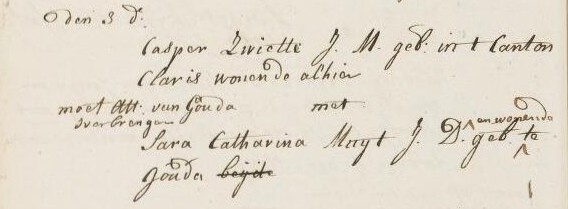 den 3 d:
Casper Zwiette J. M. geb: in t Canton
Claris wonende alhier
moet Att: van Gouda met
overbrengen
Sara Catharina Mayt J. D. geb: en wonende te
Gouda beijde